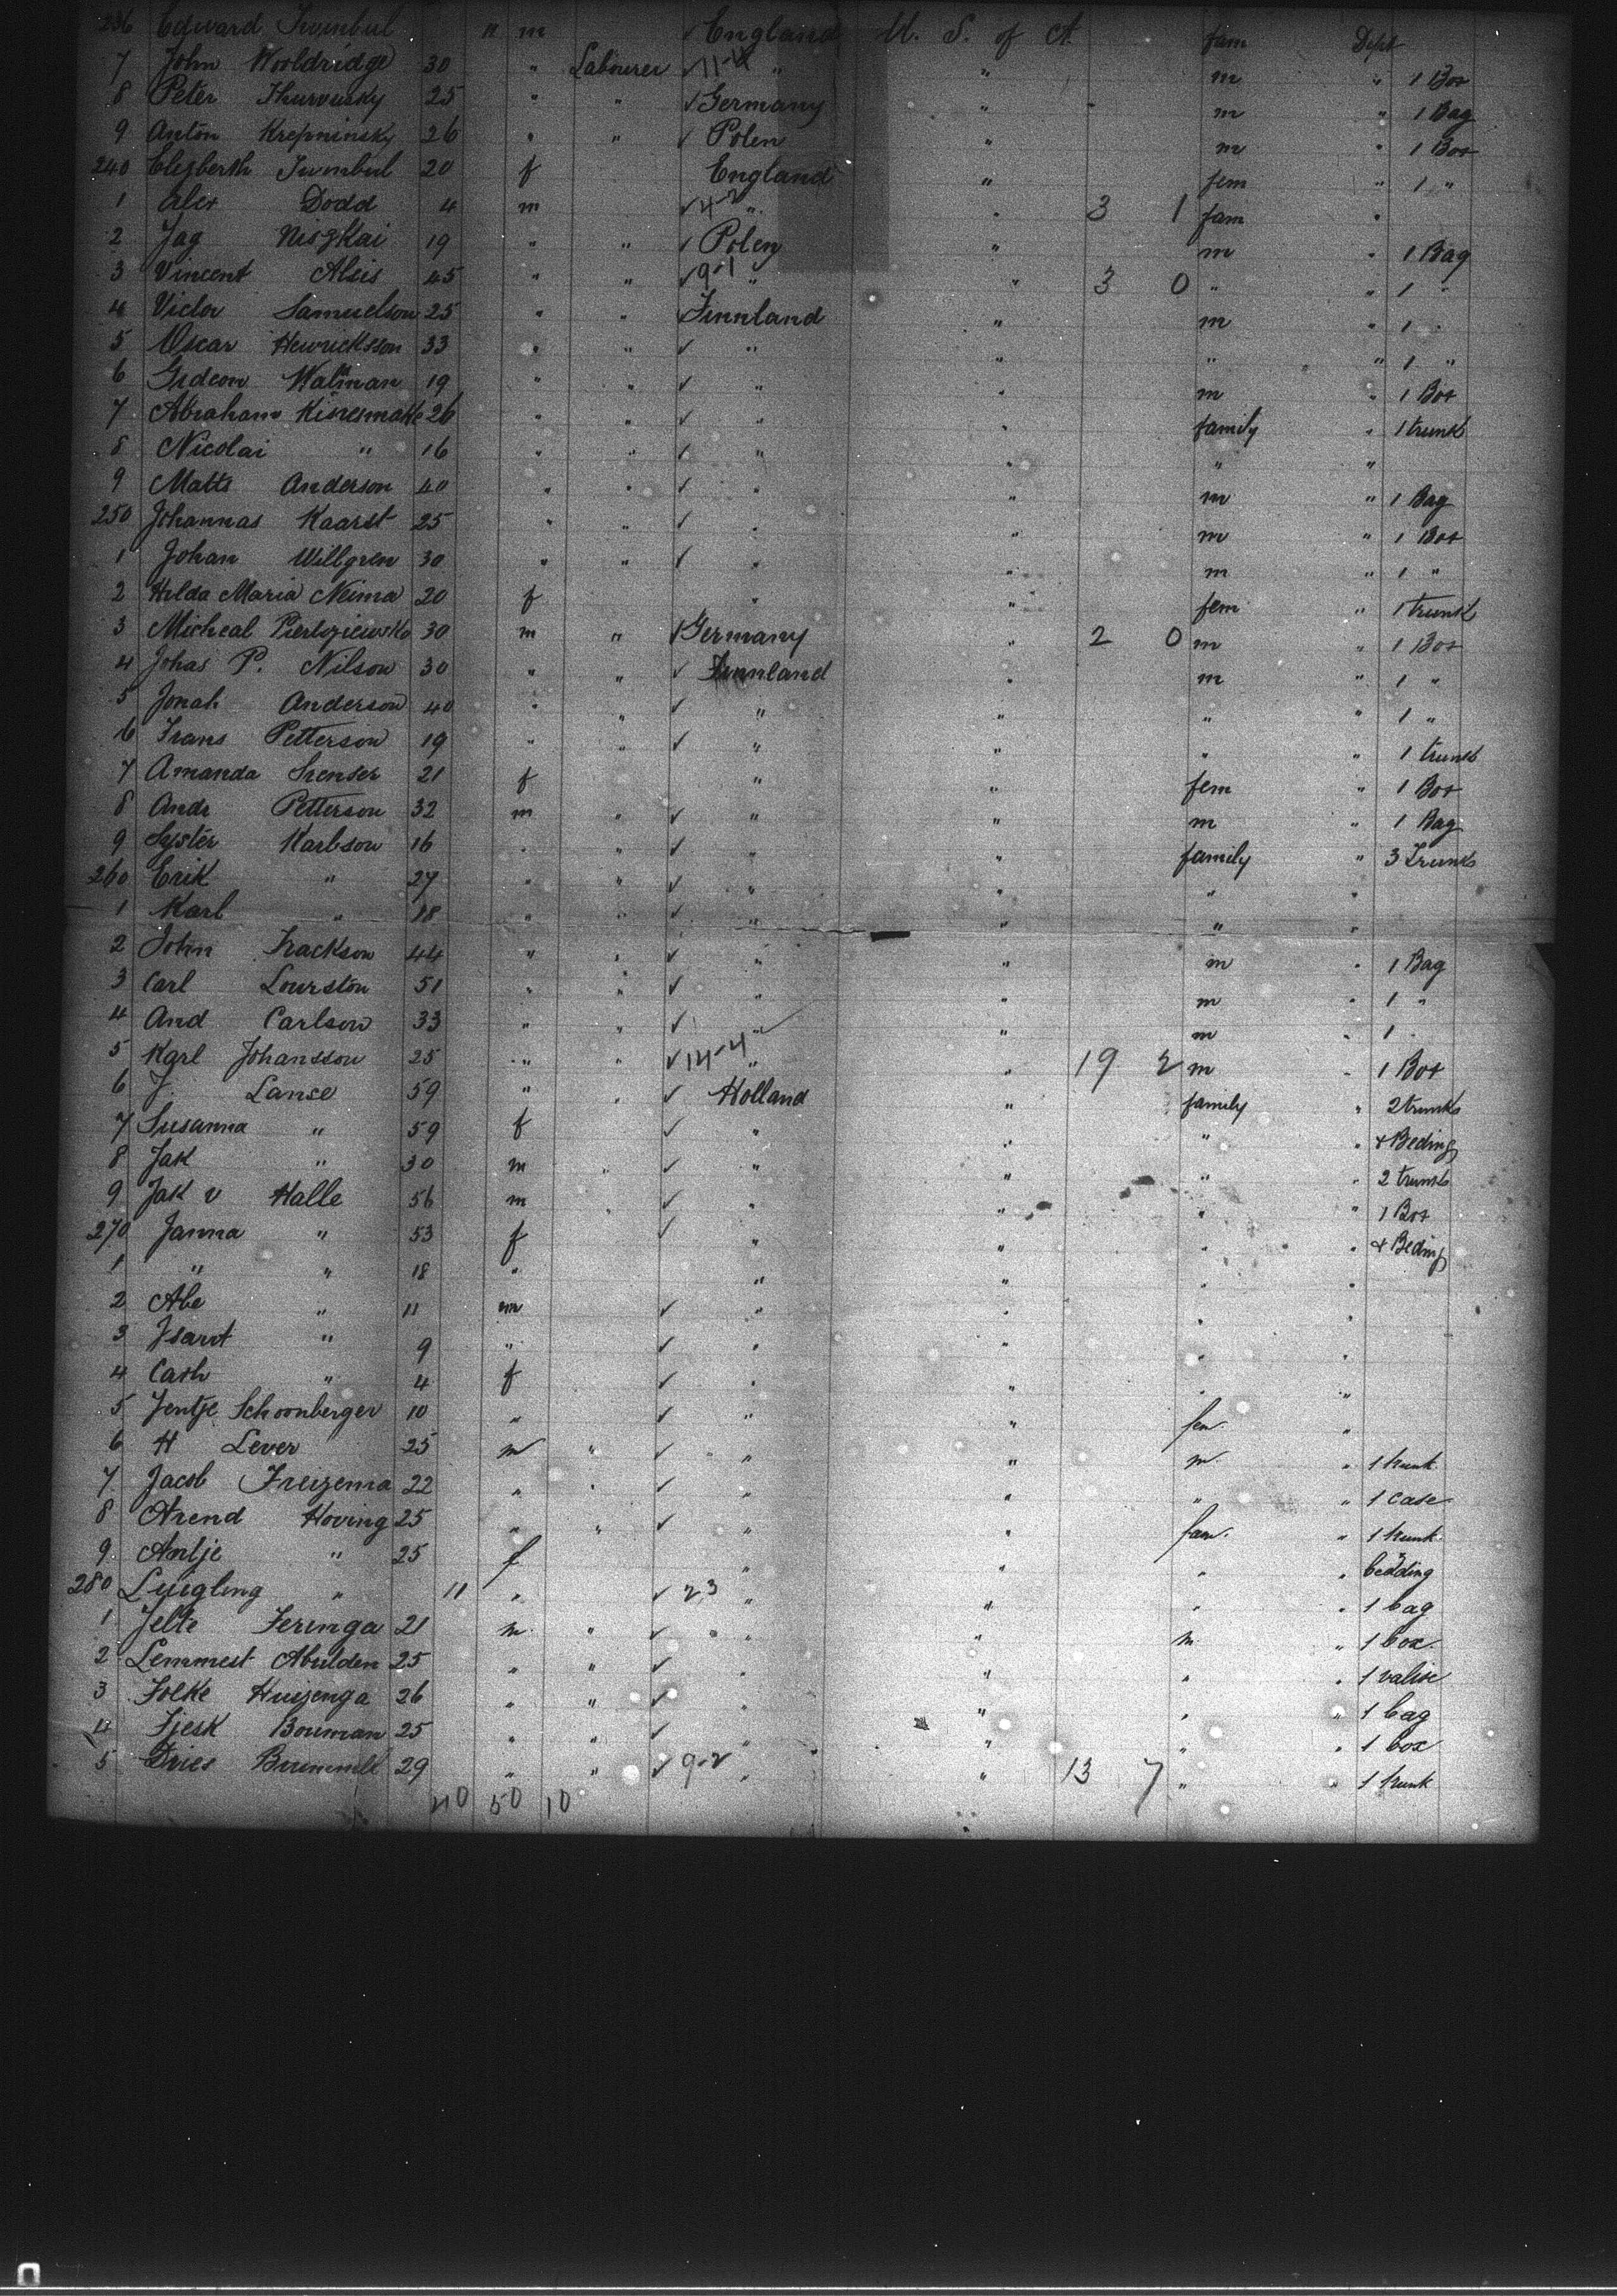 236 Edward Turnbul " m England U. S. of A. fam Dept
7 John Wooldridge 30 " Labourer ✓ 11-4 " " m " 1 Box
8 Peter 25 " " ✓ Germany " m " 1 Bag
9 Anton Krepninsky 26 " " ✓ Polen " m " 1 Box
240 Elezberth Turnbul 20 f England " fem " 1 "
1 Alex Dodd 4 m ✓ 4-2 " " 3 1 fam "
2 Jag Niszkai 19 " " ✓ Polen " m " 1 Bag
3 Vincent Alsis 45 " " ✓ 9-1 " " 3 0 " " 1 "
4 Victor Samuelson 25 " " ✓ Finnland " m " 1 "
5 Oscar Hewricksson 33 " " ✓ " " " " 1 "
6 Gideon Walman 19 " " ✓ " " m " 1 Box
7 Abraham 26 " " ✓ " " family " 1 trunk
8 Nicolai " 16 " " ✓ " " " "
9 Matts Anderson 40 " " ✓ " " m " 1 Bag
250 Johannas Kaarst 25 " " ✓ " " m " 1 Box
1 Johan Willgren 30 " " ✓ " " m " 1 "
2 Hilda Maria Neima 20 f " " fem " 1 trunk
3 Micheal 30 m " ✓ Germany " 2 0 m " 1 Box
4 Johas P. Nilson 30 " " ✓ Finnland " m " 1 "
5 Jonah Anderson 40 " " ✓ " " " " 1 "
6 Frans Petterson 19 " " ✓ " " " " 1 trunk
7 Amanda 21 f " " fem " 1 Box
8 Andr Petterson 32 m " ✓ " " m " 1 Bag
9 Syster Karlsson 16 " " ✓ " " family " 3 Trunks
260 Erik " 27 " " ✓ " " " "
1 Karl " 18 " " ✓ " " " "
2 John Frackson 44 " " ✓ " " m " 1 Bag
3 Carl Lourston 51 " " ✓ " " m " 1 "
4 And Carlson 33 " " ✓ " " m " 1 "
5 Karl Johansson 25 " " ✓ 14-4 " " 19 2 m " 1 Box
6 J. Lanse 59 " " ✓ Holland " family " 2 trunks
7 Susanna " 59 f ✓ " " " " + Beding
8 Jak " 30 m " ✓ " " " " 2 trunks
9 Jak v Halle 56 m " ✓ " " " " 1 Box
270 Janna " 53 f ✓ " " " " + Beding
1 " " 18 " " " " "
2 Abe " 11 m ✓ " " " "
3 " 9 " ✓ " " " "
4 Cath " 4 f ✓ " " " "
5 Jentje Schoonberger 10 " ✓ " " fem. "
6 H Lever 25 m " ✓ " " m. " 1 trunk
7 Jacob Freizema 22 " " ✓ " " " " 1 case
8 Arend Hoving 25 " " ✓ " " fam. " 1 trunk
9 Antje " 25 f " " " " bedding
280 " 11 " ✓ 23 " " " " 1 bag
1 Jelte Feringa 21 m " ✓ " " m " 1 box
2 Lemmest Abulden 25 " " ✓ " " " " 1 valise
3 Folke Huizenga 26 " " ✓ " " " " 1 bag
4 Tjesk Bouman 25 " " ✓ " " " " 1 box
5 Dries 29 " " ✓ 9-2 " " 13 7 " " 1 trunk
40 50 10